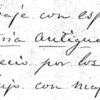 aje con esp
ria antigue
ecio por los
ijo. con may